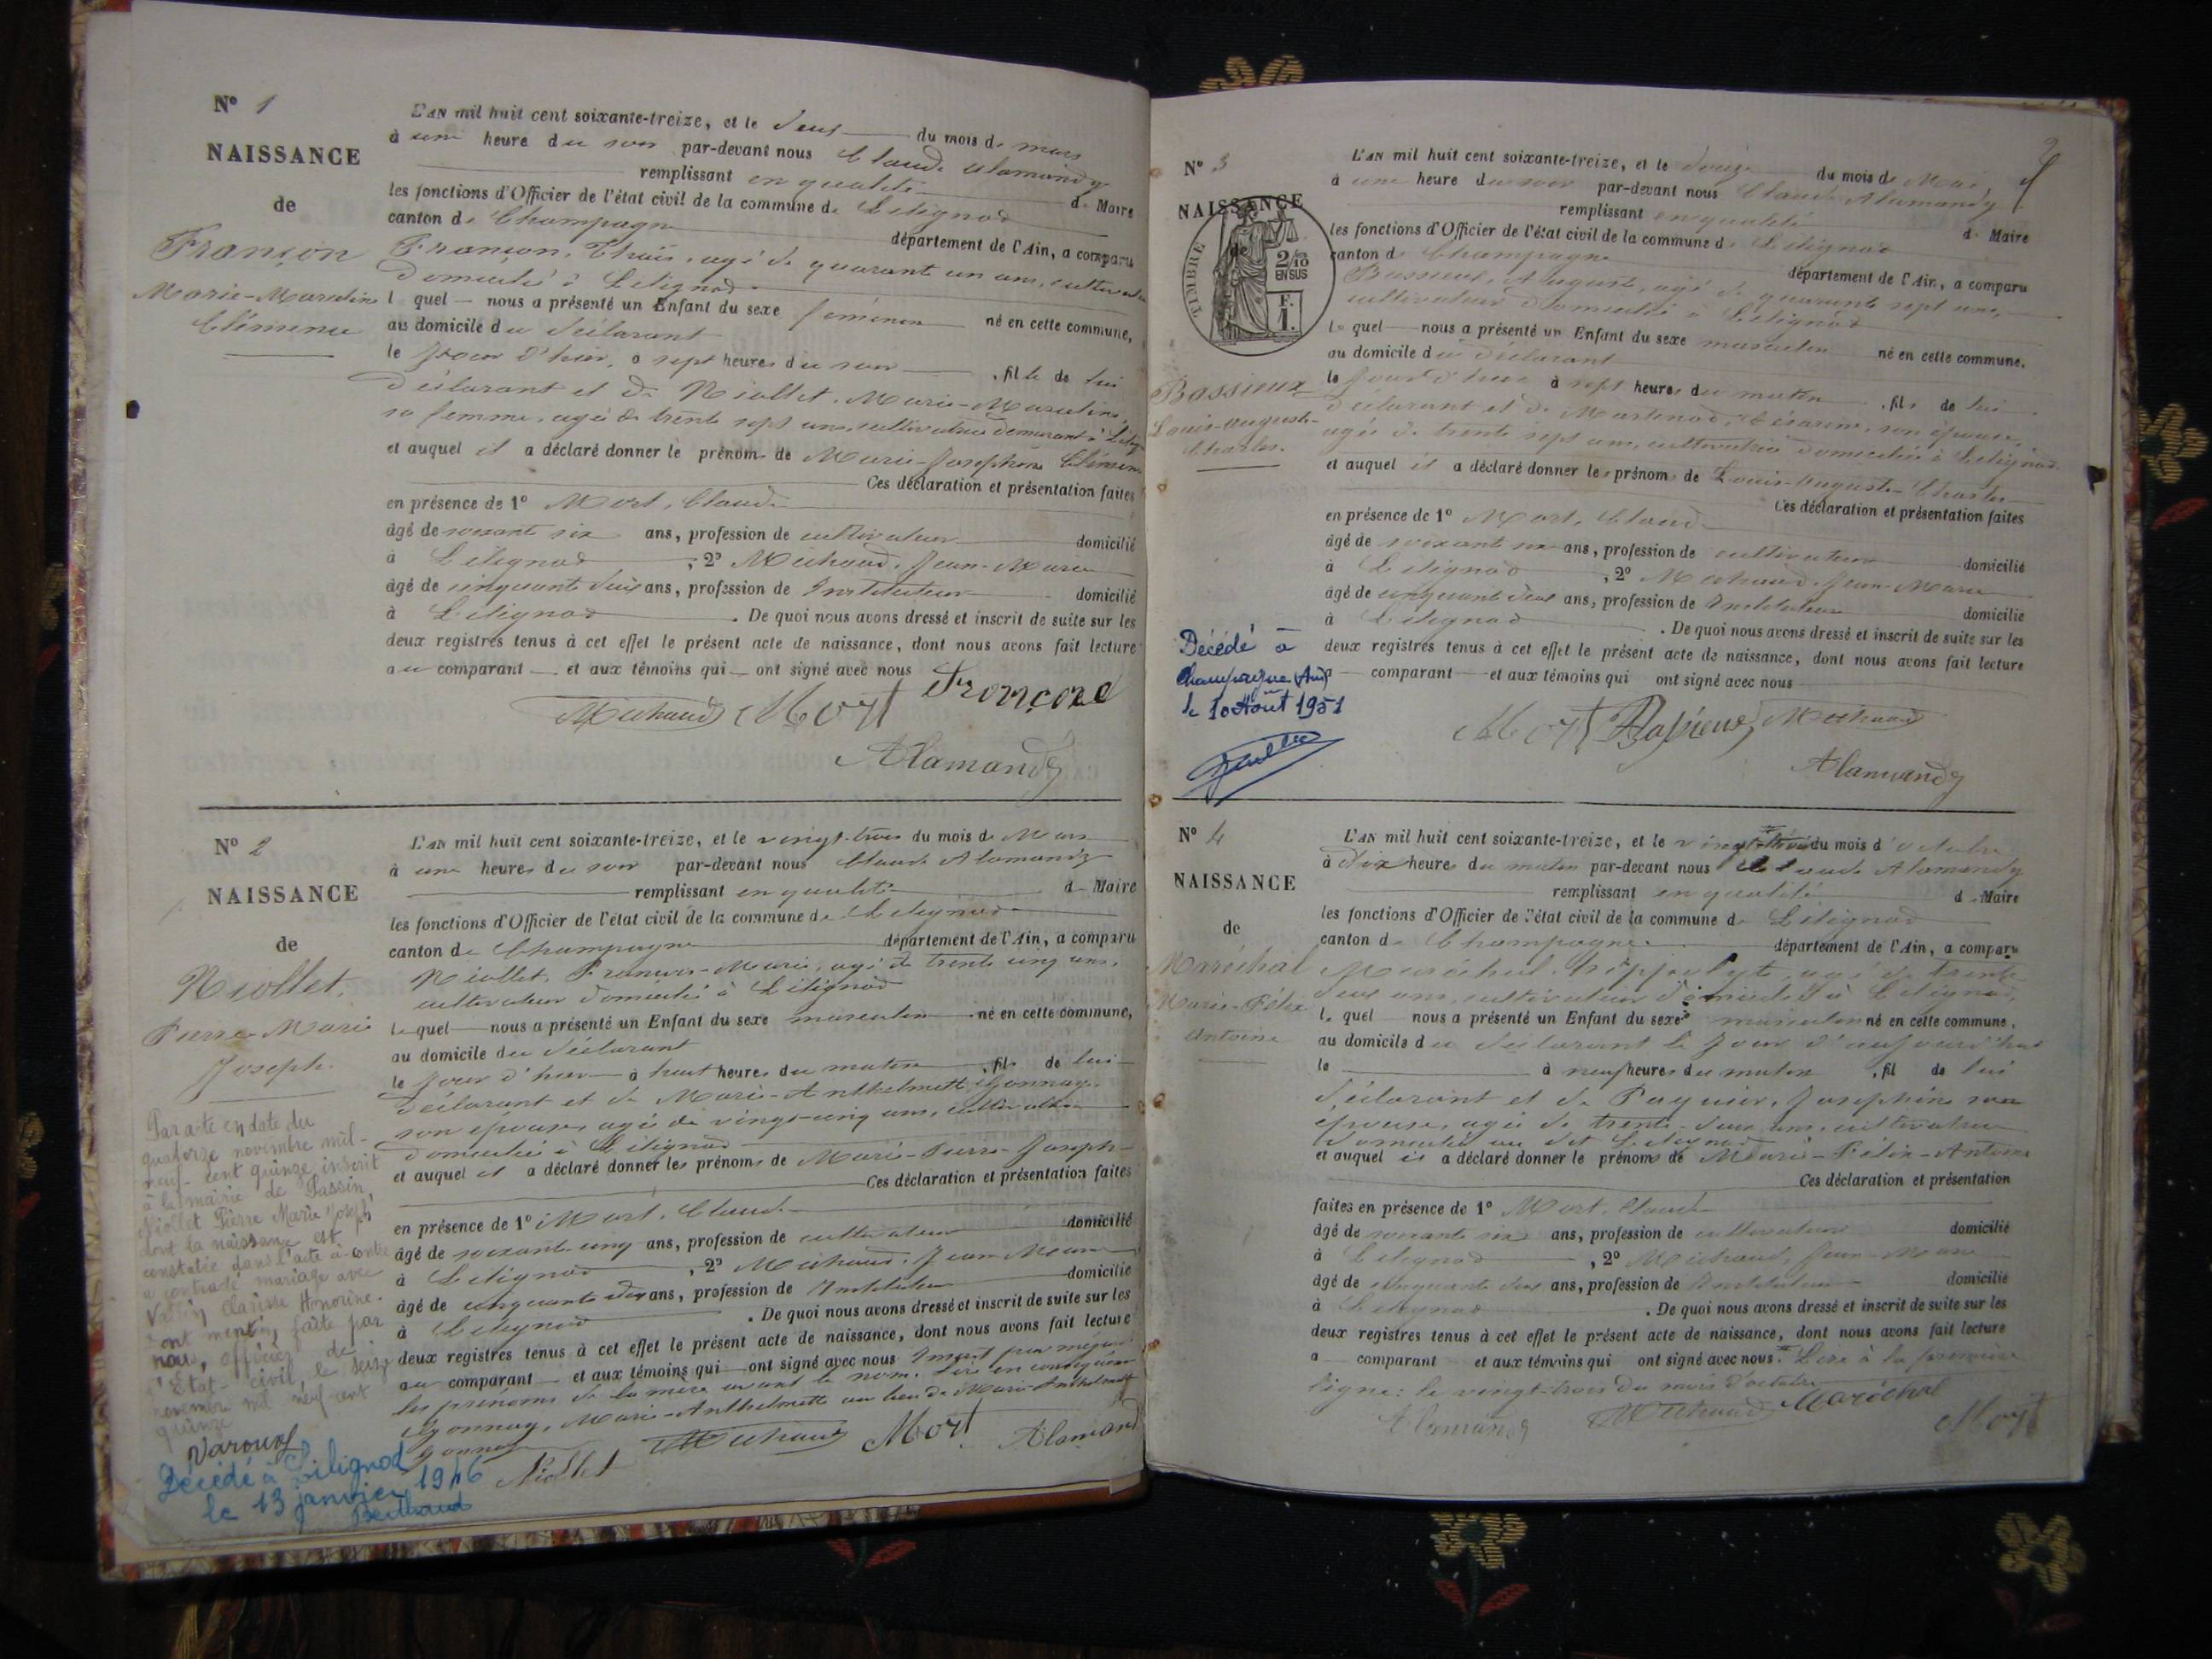 N° 1
NAISSANCE
de
Françon
Marie-Marceline
Clémence
L'AN mil huit cent soixante-treize, et le deux du mois de mars
à une heure du soir par-devant nous Claude Alamandy
remplissant en qualité de Maire
les fonctions d'Officier de l'état civil de la commune de Lilignod
canton de Champagne département de l'Ain, a comparu
Françon, agé de quarante un ans, cultivateur
domicilié à Lilignod
lequel nous a présenté un Enfant du sexe féminin né en cette commune,
au domicile du déclarant
le jour d'hier, à sept heures du soir, fille de lui
déclarant et de Niollet, Marie-Marceline,
sa femme, agée de trente sept ans, cultivatrice demeurant à
et auquel il a déclaré donner le prénoms de Marie-Josephine Clémence
Ces déclaration et présentation faites
en présence de 1° Mort, Claude
âgé de soixante six ans, profession de cultivateur domicilié
à Lilignod, 2° Michaud, Jean-Marie
âgé de cinquante deux ans, profession de Instituteur domicilié
à Lilignod. De quoi nous avons dressé et inscrit de suite sur les
deux registres tenus à cet effet le présent acte de naissance, dont nous avons fait lecture
au comparant et aux témoins qui ont signé avec nous
Michaud Mort Françon
Alamandy
N° 2
NAISSANCE
de
Niollet,
Pierre-Marie
Joseph.
L'AN mil huit cent soixante-treize, et le vingt-trois du mois de Mars
à une heures du soir par-devant nous Claude Alamandy
remplissant en qualité de Maire
les fonctions d'Officier de l'état civil de la commune de Lilignod
canton de Champagne département de l'Ain, a comparu
Niollet, François-Marie, agé de trente cinq ans,
cultivateur domicilié à Lilignod
lequel nous a présenté un Enfant du sexe masculin né en cette commune,
au domicile du déclarant
le jour d'hier à huit heures du matin, fils de lui
déclarant et de Marie-Anthelmette Gonnay,
son épouse, agée de vingt-cinq ans, cultivatrice
domiciliée à Lilignod
et auquel il a déclaré donner les prénoms de Marie-Pierre-Joseph
Ces déclaration et présentation faites
en présence de 1° Mort, Claude
âgé de soixante cinq ans, profession de cultivateur domicilié
à Lilignod, 2° Michaud, Jean-Marie
âgé de cinquante deux ans, profession de Instituteur domicilié
à Lilignod. De quoi nous avons dressé et inscrit de suite sur les
deux registres tenus à cet effet le présent acte de naissance, dont nous avons fait lecture
au comparant et aux témoins qui ont signé avec nous
les prénoms de la mère avant le nom. Lire en conséquence
Gonnay, Marie-Anthelmette au lieu de Marie-Anthelmette
Gonnay
Niollet Michaud Mort Alamandy
Par acte en date du
quatorze novembre mil-
neuf-cent quinze, inscrit
à la mairie de Passin,
Niollet Pierre Marie Joseph
dont la naissance est
constatée dans l'acte à-contre
a contracté mariage avec
Clarisse Honorine.
Dont mention faite par
nous, officier de
l'Etat-civil, le seize
novembre mil neuf cent
quinze
Décédé à Lilignod
le 13 janvier 1946
Berthaud
N° 3
NAISSANCE
de
TIMBRE
2/10
EN SUS
F.
1.
Bassieux
Louis-Auguste-
Charles.
L'AN mil huit cent soixante-treize, et le douze du mois de Mai,
à une heure du soir par-devant nous Claude Alamandy
remplissant en qualité de Maire
les fonctions d'Officier de l'état civil de la commune de Lilignod
canton de Champagne département de l'Ain, a comparu
Bassieux, Auguste, agé de quarante sept ans,
cultivateur domicilié à Lilignod
lequel nous a présenté un Enfant du sexe masculin né en cette commune,
au domicile du déclarant
le jour d'hier à sept heures du matin, fils de lui
déclarant et de Martinod, Césarine, son épouse,
agée de trente sept ans, cultivatrice domiciliée à Lilignod
et auquel il a déclaré donner les prénoms de Louis-Auguste-Charles
Ces déclaration et présentation faites
en présence de 1° Mort, Claude
âgé de soixante six ans, profession de cultivateur domicilié
à Lilignod, 2° Michaud, Jean-Marie
âgé de cinquante deux ans, profession de Instituteur domicilié
à Lilignod. De quoi nous avons dressé et inscrit de suite sur les
deux registres tenus à cet effet le présent acte de naissance, dont nous avons fait lecture
comparant et aux témoins qui ont signé avec nous
Mort Bassieux Michaud
Alamandy
Décédé à
Champagne (Ain)
le 10 Août 1951
N° 4
NAISSANCE
de
Maréchal
Marie-Félix
Antoine
L'AN mil huit cent soixante-treize, et le vingt-trois du mois d'octobre
à dix heures du matin par-devant nous Claude Alamandy
remplissant en qualité de Maire
les fonctions d'Officier de l'état civil de la commune de Lilignod
canton de Champagne département de l'Ain, a comparu
Maréchal, hippolyte, agé de trente
deux ans, cultivateur domicilié à Lilignod,
lequel nous a présenté un Enfant du sexe masculin né en cette commune,
au domicile du déclarant le jour d'aujourd'hui
le à neuf heures du matin, fil de lui
déclarant et de Paquier, Josephine son
épouse, agée de trente-deux ans, cultivatrice
domiciliée au dit Lilignod
et auquel il a déclaré donner le prénoms de Marie-Félix-Antoine
Ces déclaration et présentation
faites en présence de 1° Mort, Claude
âgé de soixante six ans, profession de cultivateur domicilié
à Lilignod, 2° Michaud, Jean-Marie
âgé de cinquante deux ans, profession de Instituteur domicilié
à Lilignod. De quoi nous avons dressé et inscrit de suite sur les
deux registres tenus à cet effet le présent acte de naissance, dont nous avons fait lecture
a comparant et aux témoins qui ont signé avec nous. Lire à la première
ligne: le vingt-trois du mois d'octobre
Alamandy Michaud Maréchal Mort